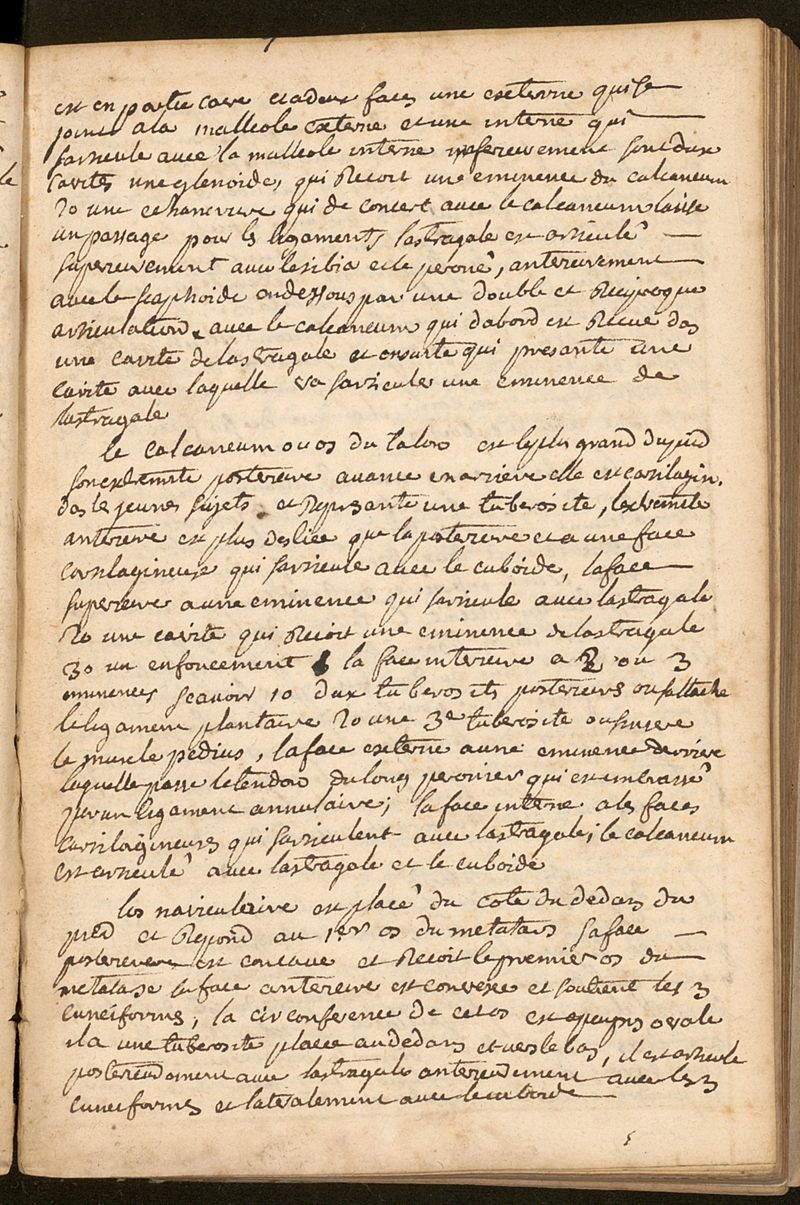 est en partie cave et a deux faces une externe qui se
joint a la malleole externe et une interne qui
sarticule avec la malleole interne inferieurement sont deux
cavités une glenoide, qui recoit une eminence du calcaneum
2o une echancrure qui de concert avec le calcaneum laisse
un passage pour les ligaments, lastragale est articulé
superieurement avec le tibia et le peroné, anterieurement
avec le scaphoide au dessous par une double et reciproque
articulation avec le calcaneum qui dabord est recue das
une cavité de lastragale et ensuite qui presante une
cavité avec laquelle va sarticuler une eminence de
lastragale
le calcaneum ou os du talon est le plus grand du pied
son extremité posterieure avance en arriere elle est cartilagin.
das les jeunes sujets et represante une tuberosité, lextremité
anterieure est plus desliée que la posterieure et a une face
cartilagineuse qui sarticule avec le cuboide, la face
superieure a une eminence qui sarticule avec lastragale
2o une cavité qui recoit une eminence de lastragale
3o un enfoncement la face interieure a 2 ou 3
eminences scavoir 1o deux tuberosités posterieurs ou sattache
le ligament plantaire 2o une 3e tuberosité ou sinsere
le muscle pedius, la face externe a une eminence derriere
laquelle passe le tendon du long peronier qui est embrassé
par un ligament annulaire; la face interne a les faces
cartilagineuses qui sarticulent avec lastragale; le calcaneum
est articulé avec lastragale et le cuboide
los naviculaire est placé du coté du dedans du
pied et repond au 1er os du metatars sa face
posterieure est concave et recoit le premier os du
metatase sa face anterieure est convexe et soutient les 3
cuneiformes, la circonference de cet os est apeupres ovale
il a une tuberosité placée au dedans et vers le bas, il est articulé
posterieurement avec lastragale anterieurement avec les 3
cuneiformes et lateralement avec le cuboide